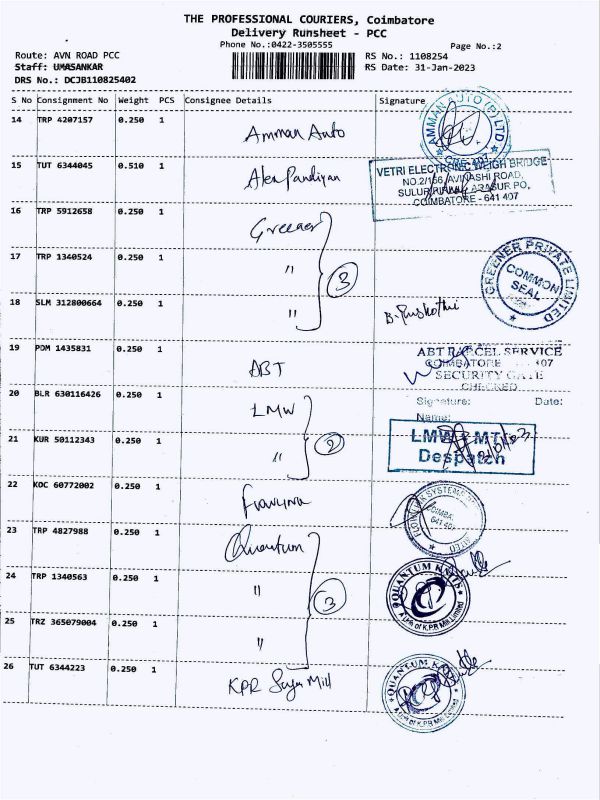 THE PROFESSIONAL COURIERS, Coimbatore
Delivery Runsheet - PCC
Phone No.:0422-3505555
Page No.:2
Route: AVN ROAD PCC
RS No.: 1108254
Staff: UMASANKAR
RS Date: 31-Jan-2023
DRS No.: DCJB110825402
S No Consignment No Weight PCS Consignee Details Signature
14 TRP 4207157 0.250 1 Amman Auto
AMMAN AUTO (P) LTD
15 TUT 6344045 0.510 1 Alex Pandiyan
VETRI ELECTRONIC WEIGH BRIDGE
NO.2/166, AVINASHI ROAD,
SULUR ARASUR PO,
COIMBATORE - 641 407
16 TRP 5912658 0.250 1 Greener
17 TRP 1340524 0.250 1 "
3
GREENER PRIVATE LIMITED
COMMON
SEAL
18 SLM 312800664 0.250 1 "
19 PDM 1435831 0.250 1 ABT
ABT PARCEL SERVICE
COIMBATORE 407
SECURITY GATE
CHECKED
20 BLR 630116426 0.250 1 LMW
Signature: Date:
Name:
2
21 KUR 50112343 0.250 1 "
LMW MTD
Despatch
22 KOC 60772002 0.250 1
641 407
23 TRP 4827988 0.250 1 Quantum
24 TRP 1340563 0.250 1 "
3
QUANTUM KNITS
A Unit of K.P.R Mill Limited
25 TRZ 365079004 0.250 1 "
26 TUT 6344223 0.250 1 KPR Sugar Mill
QUANTUM KNITS
A Unit of K.P.R Mill Limited